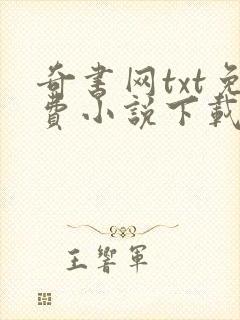 奇書网txt免
費小説下載
王響軍